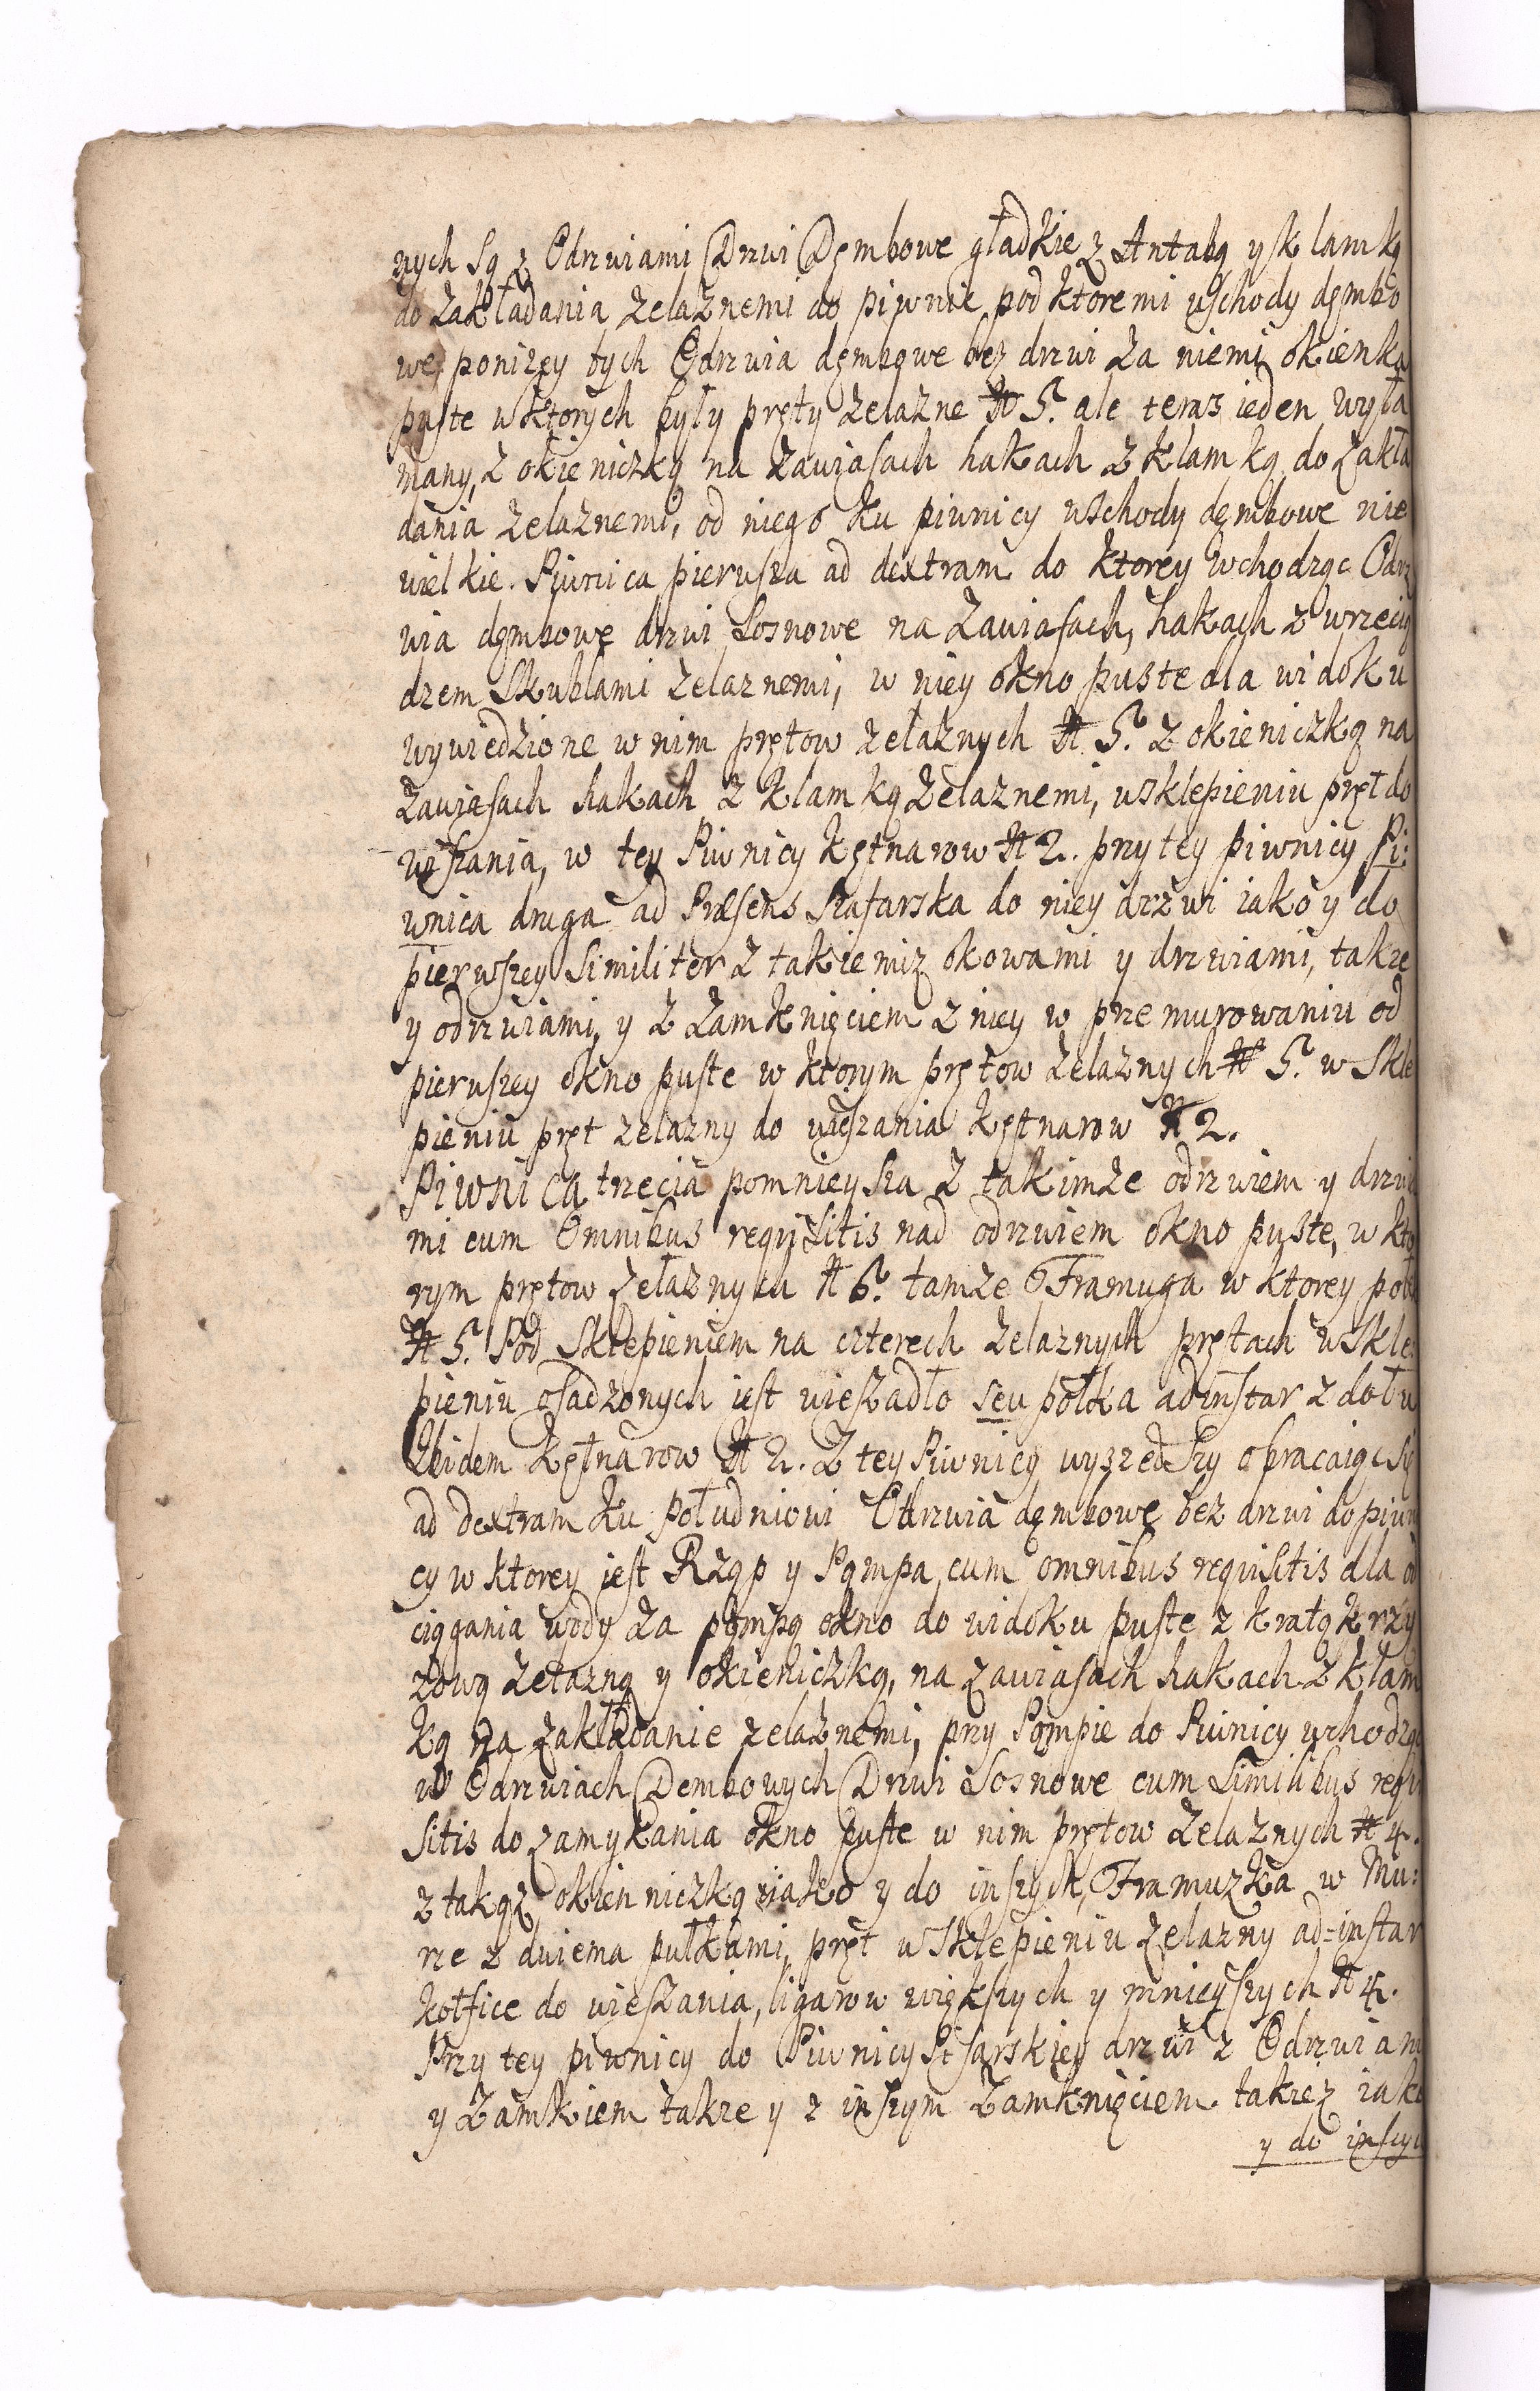 nych są z Odrzwiami Drzwi Dęmbowe gładkie z Antabą y sklamką
do zakładania żelaznemi do piwnic pod ktoremi wschody dęmbo
we, poniżey tych Odrzwia dęmbowe bez drzwi za niemi okienka
puste wktorych były pręty żelazne N 5. ale teras ieden wyła
many, z okieniczką na zawiasach hakach z klamką do zakła
dania żelaznemi, od niego ku piwnicy wschody dęmbowe nie
wielkie. Piwnica pierwsza ad dextram do ktorey wchodząc Odrz
wia dęmbowe drzwi Sosnowe na Zawiasach, hakach z wrzecią
dzem Skublami żelaznemi, w niey okno puste dla widoku
wywiedzione w nim prętow żelaznych N 5. z okieniczką na
zawiasach hakach z klamką żelaznemi, wsklepieniu pręt do
wiszania, w tey Piwnicy kętnarow N 2. przy tey piwnicy Pi:
wnica druga ad Præsens Szafarska do niey drzwi iako y do
pierwszey Similiter z takiemiz okowami y drzwiami, takze
y odrzwiami, y z zamknięciem z niey w przemurowaniu od
pierwszey okno puste w ktorym prętow żelaznych N 5. w Skle
pieniu pręt zelazny do wieszania kętnarow N 2.
Piwnica trzecia pomnieysza z takimże odrzwiem y drzwia
mi cum Omnibus requisitis nad odrzwiem okno puste, w kto
rym prętow żelaznych N 6. tamze Framuga w ktorey połek
N 5. Pod Sklepieniem na czterech żelaznych prętach wSkle:
pieniu osadzonych iest wieszadło seu połka adinstar z dołu
Ibidem kętnarow N 2. Z tey Piwnicy wyszedszy obracaiąc się
ad dextram ku Południowi Odrzwia dęmbowe bez drzwi do piwni
cy w ktorey iest Rząp y Pąmpa cum omnibus requisitis dla od
ciągania wody za pąmpą okno do widoku puste z kratą krzy
żową żelazną y okieniczką, na zawiasach hakach z klam
ką na zakładanie zelaznemi, przy Pąmpie do Piwnicy wchodząc
w Odrzwiach Dembowych Drzwi Sosnowe cum Similibus requi
sitis do zamykania okno puste w nim prętow żelaznych N 4.
z takąż okienniczką iako y do inszych, Framuzka w Mu:
rze z dwiema pułkami, pręt wSklepieniu żelazny ad=instar
kołfice do wieszania, ligarow większych y mnieyszych N 4.
Przy tey piwnicy do Piwnicy Pisarskiey drzwi z Odrzwiami
y Zamkiem takze y z inszym Zamknięciem takież iako
y do inszych